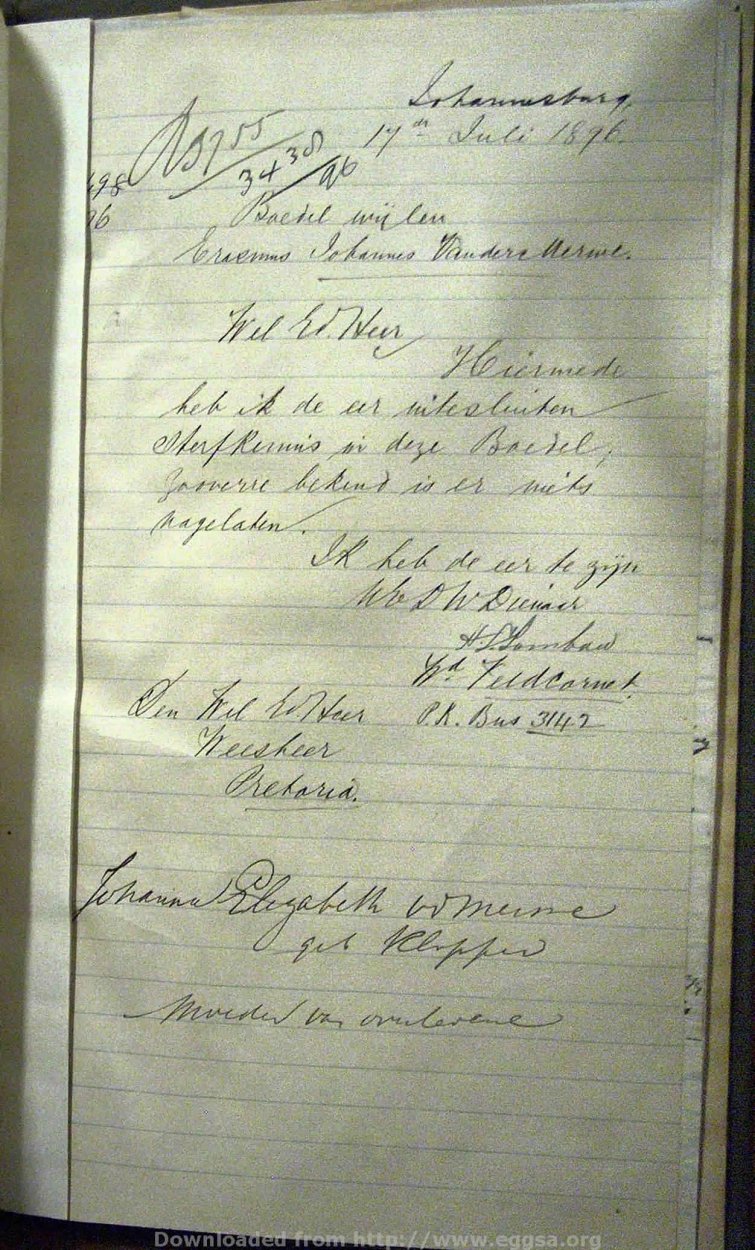 Johannesburg,
17de Juli 1896.
R5755
3438
96
498
96
Boedel wijlen
Erasmus Johannes Van der Merwe.
Wel Ed. Heer
Hiermede
heb ik de eer uitesluiten
Sterfkennis in deze Boedel;
zooverre bekend is er niets
nagelaten.
Ik heb de eer te zijn
UWEd DW Dienaar
H.S. Lombard
Wd Veldcornet.
Den Wel Ed Heer P.K. Bus 3142
Weesheer
Pretoria.
Johanna Elizabeth vd Merwe
geb Klopper
Moeder van overledene
Downloaded from http://www.eggsa.org